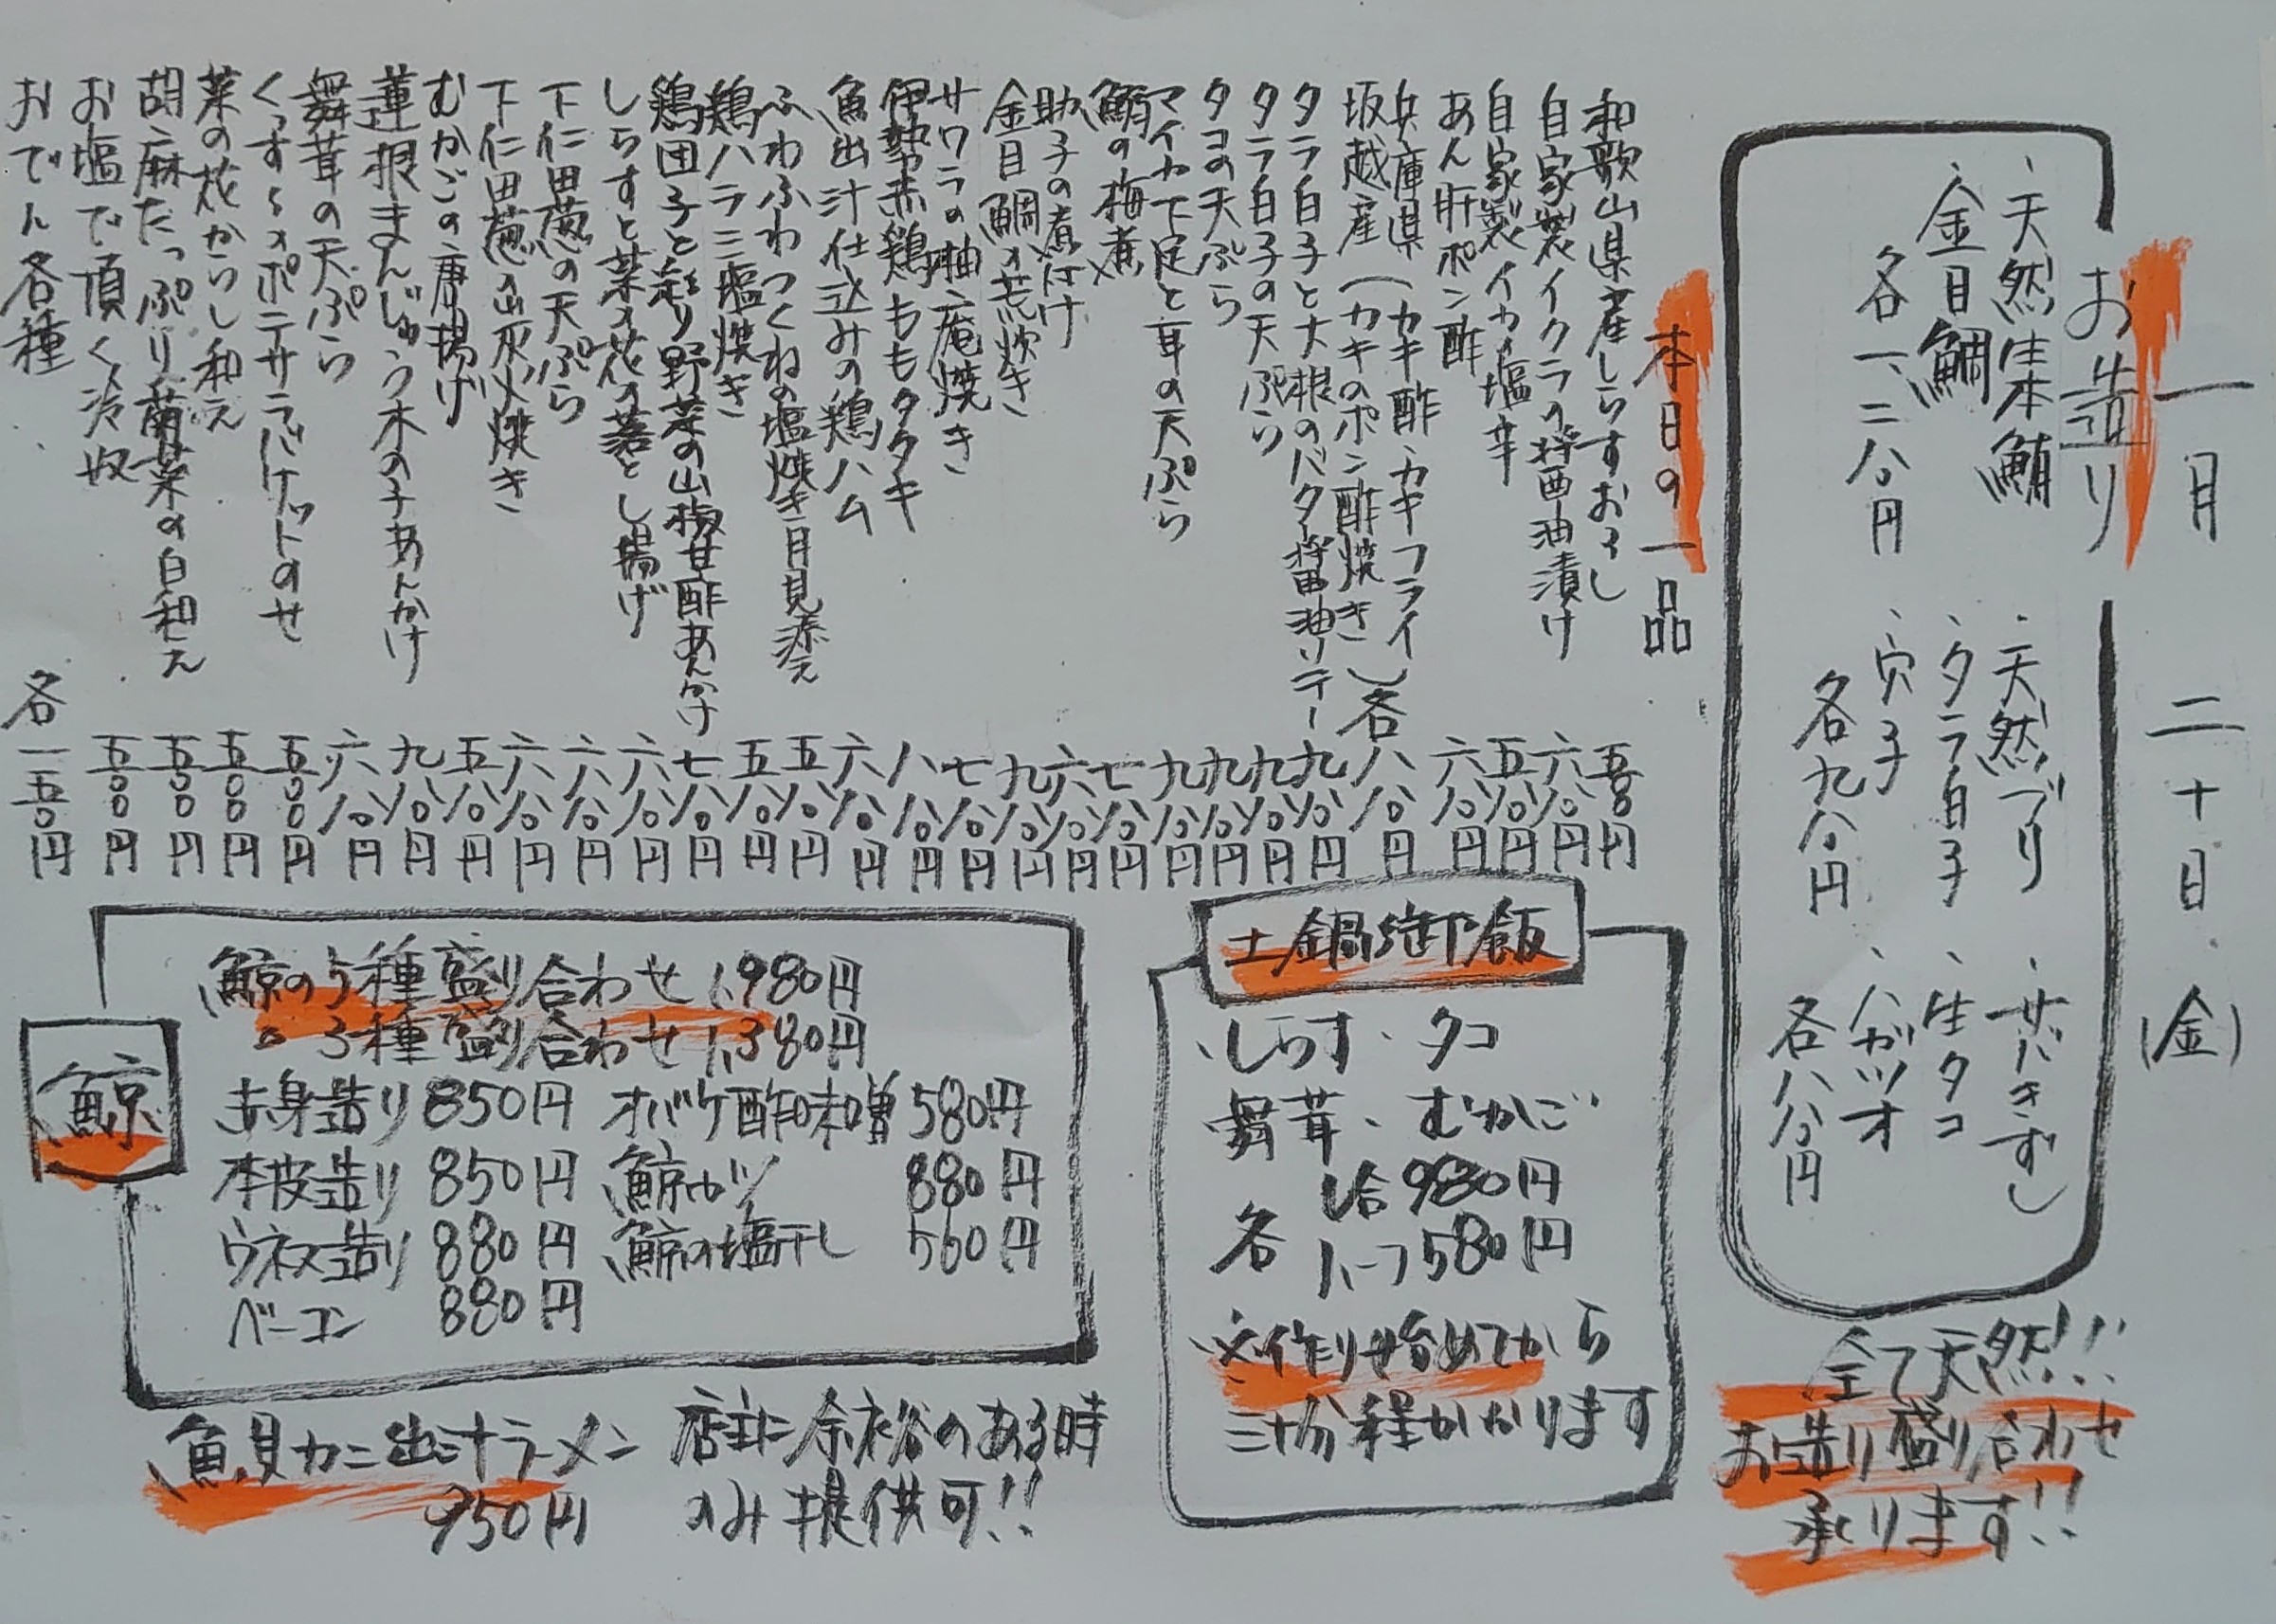 一月二十日(金)
お造り
・天然生本鮪
・金目鯛
各一、二八〇円
・天然ブリ
・タラ白子
・穴子
各九八〇円
・サバきずし
・生タコ
・ハガツオ
各八八〇円
全て天然!!
お造り盛り合わせ
承ります!!
本日の一品
和歌山県産しらすおろし 五五〇円
自家製イクラの醤油漬け 六八〇円
自家製イカの塩辛 五八〇円
あん肝ポン酢 六八〇円
兵庫県 (カキ酢、カキフライ
坂越産 (カキのポン酢焼き) 各八八〇円
タラ白子と大根のバター醤油ソテー 九八〇円
タラ白子の天ぷら 九八〇円
タコの天ぷら 九八〇円
マイカ下足と耳の天ぷら 九八〇円
鮪の梅煮 七八〇円
助子の煮付け 六八〇円
金目鯛の荒炊き 九八〇円
サワラの柚庵焼き 七八〇円
伊勢赤鶏ももタタキ 八八〇円
魚出汁仕込みの鶏ハム 六八〇円
ふわふわつくねの塩焼き月見添え 五八〇円
鶏ハラミ塩焼き 五八〇円
鶏団子と彩り野菜の山椒甘酢あんかけ 七八〇円
しらすと菜の花の落とし揚げ 六八〇円
下仁田葱の天ぷら 六八〇円
下仁田葱の山灰火焼き 六八〇円
むかごの唐揚げ 五八〇円
蓮根まんじゅう木の子あんかけ 九八〇円
舞茸の天ぷら 六八〇円
くっすんポテサラバケットのせ 五五〇円
菜の花からし和え 五五〇円
胡麻たっぷり菊菜の白和え 五五〇円
お塩で頂く冷奴 五五〇円
おでん各種 各一五〇円
土鍋御飯
・しらす・タコ
舞茸・むかご
各 1合980円
ハーフ580円
※作り始めてから
三十分程かかります
鯨
鯨の5種盛り合わせ 1,980円
〃 3種盛り合わせ 1,380円
赤身造り 850円 オバケ酢味噌 580円
本皮造り 850円 鯨カツ 880円
ウネス造り 880円 鯨の塩干し 560円
ベーコン 880円
魚貝カニ出汁ラーメン 店主に余裕のある時
950円 のみ提供可!!